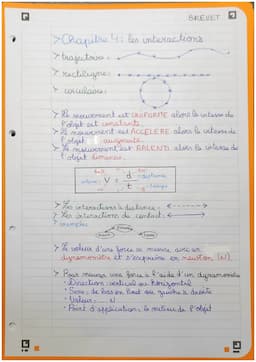 BREVET
> Chapitre 4: les interactions
> trajectoire:
> rectiligne:
> circulaire:
> Le mouvement est UNIFORME alors la vitesse de
l'objet est constante.
> Le mouvement est ACCELERE alors la vitesse de
l'objet augmente.
> Le mouvement est RALENTI alors la vitesse de
l'objet diminue.
vitesse V = d distance
t temps
> Les interactions à distance:
> Les interactions de contact:
> exemples
> La valeur d'une force se mesure avec un
dynamomètre et s'exprime en newton (N).
> Pour mesurer une force à l'aide d'un dynamomètre
• Direction: vertical ou horizontal
• Sens: de bas en haut ou gauche à droite
• Valeur: ... N
• Point d'application: le milieu de l'objet